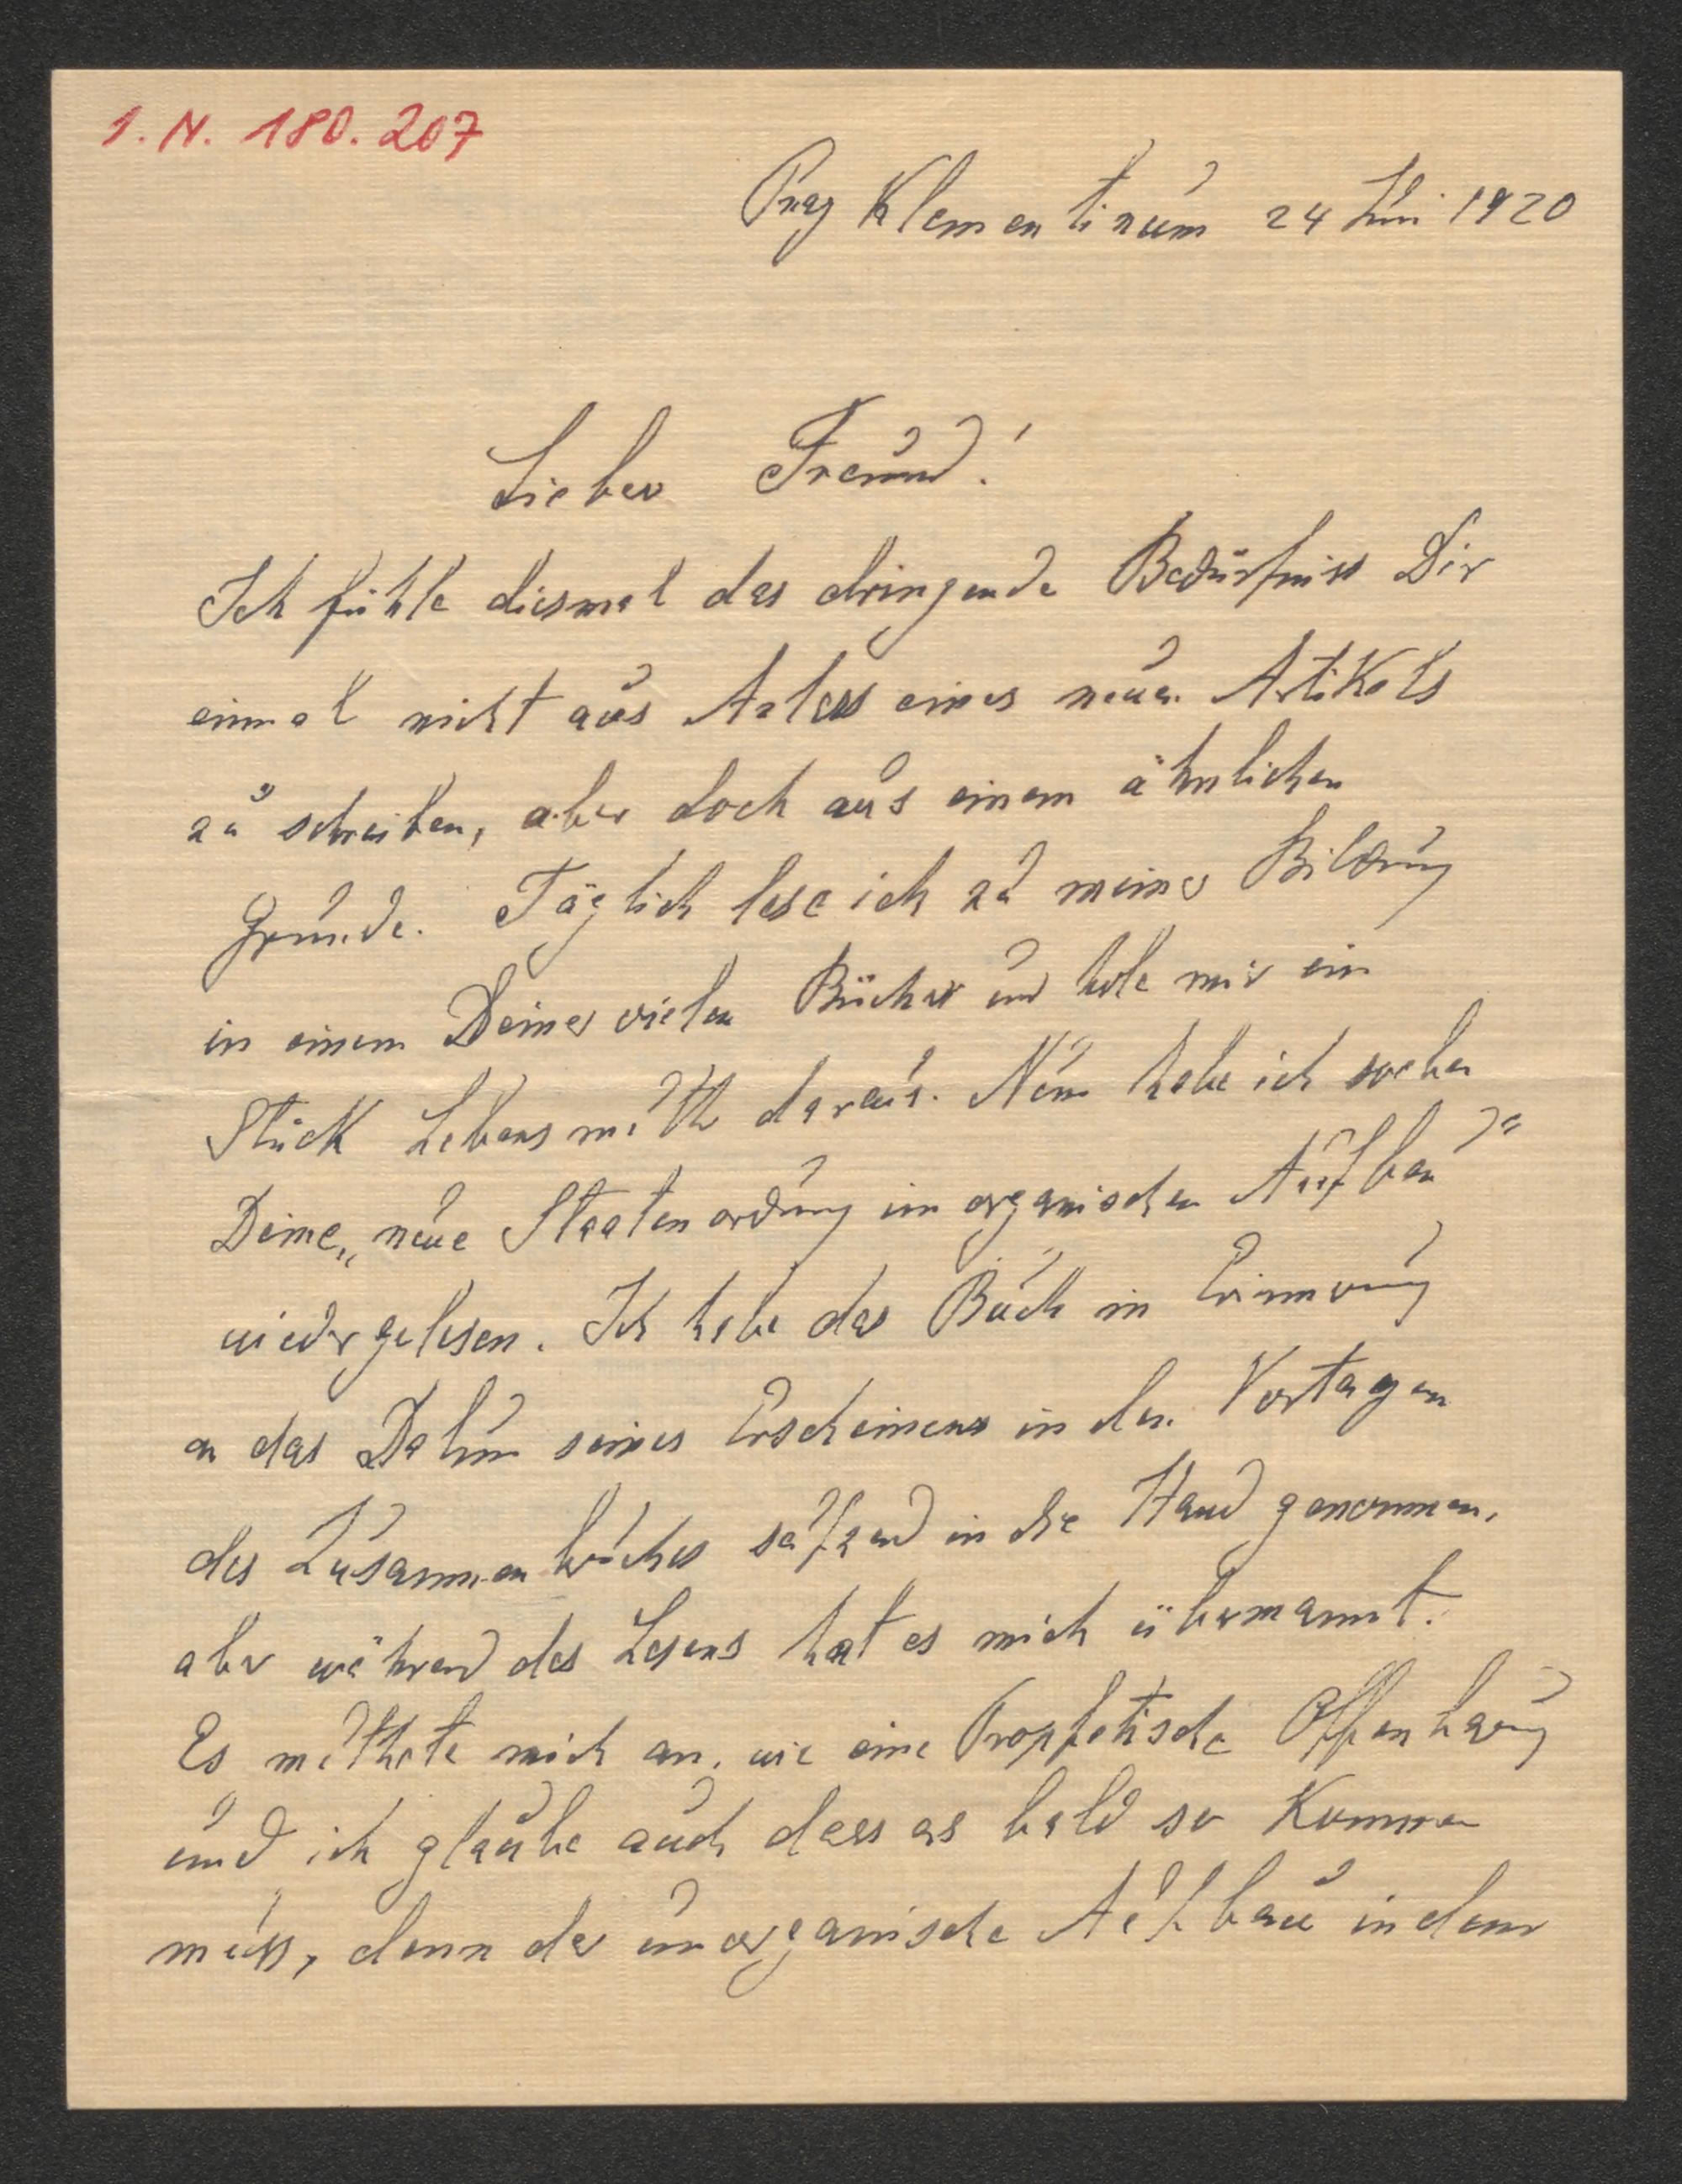 I.N. 180.207
Prag Klementinum 24 Juni 1920
Lieber Freund!
Ich fühle diesmal das dringende Bedürfniss Dir
einmal nicht aus Anlass eines neuen Artikels
zu schreiben, aber doch aus einem ähnlichen
Grunde. Täglich lese ich zu meiner Bildung
in einem Deiner vielen Bücher und hole mir ein
Stück Lebensmuth daraus. Nun habe ich soeben
Deine „neue Staatenordnung im organischen Aufbau“
wiedergelesen. Ich habe das Buch in Erinnerung
an das Datum seines Erscheinens in den Vortagen
des Zusammenbruches seufzend in die Hand genommen,
aber während des Lesens hat es mich übermannt.
Es muthete mich an, wie eine Prophetische Offenbarung
und ich glaube auch dass es bald so Kommen
muss, denn der unorganische Aufbau in dem